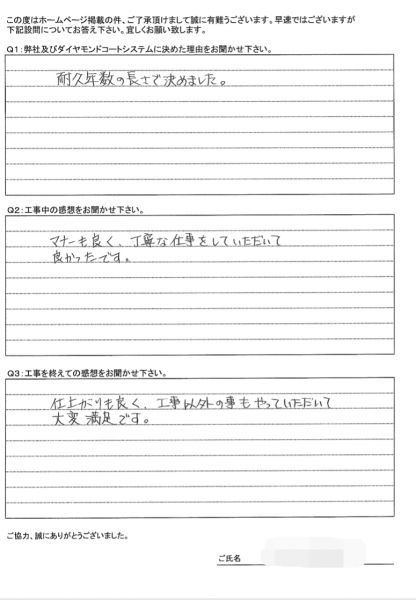 この度はホームページ掲載の件、ご了承頂けまして誠に有難うございます。早速ではございますが
下記設問についてお答え下さい。宜しくお願い致します。
Q1:弊社及びダイヤモンドコートシステムに決めた理由をお聞かせ下さい。
耐久年数の長さで決めました。
Q2:工事中の感想をお聞かせ下さい。
マナーも良く、丁寧な仕事をしていただいて
良かったです。
Q3:工事を終えての感想をお聞かせ下さい。
仕上がりも良く、工事以外の事もやっていただいて
大変満足です。
ご協力、誠にありがとうございました。
ご氏名